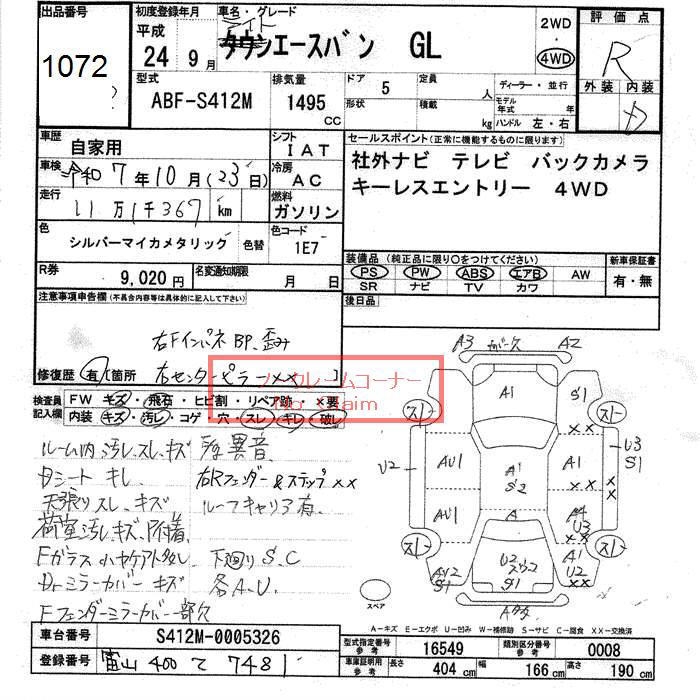 出品番号 初度登録年月 車名・グレード 2WD 評価点
1072 平成 24 9月 ライト タウンエースバン GL ・ 4WD R
型式 排気量 ドア 5 定員 人 ディーラー・並行 外装 内装
ABF-S412M 1495 cc 形状 積載 kg モデル年式 年 ハンドル 左・右 D
車歴 自家用 シフト IAT セールスポイント(正常に機能するものに限ります)
車検 令和 7年10月(23日) 冷房 AC 社外ナビ テレビ バックカメラ
走行 11万1千367 km 燃料 ガソリン キーレスエントリー 4WD
色 シルバーマイカメタリック 色替 色コード 1E7
装備品(純正品に限り○をつけてください) 新車保証書
R券 9,020円 名変通知期限 月 日 PS PW ABS エアB AW 有・無
SR ナビ TV カワ
注意事項申告欄(不具合内容等は具体的に記入して下さい) 後日品
右Fインパネ BP、歪み
修復歴 有 [箇所 右センターピラー×× ]
ノークレームコーナー
No Claim
検査員記入欄 FW キズ・飛石・ヒビ割・リペア跡・×要
内装 キズ・汚レ・コゲ・穴・スレ・キレ・破レ
ルーム内汚レ、スレ、キズ 異音
Dシート キレ 右Rフェンダー&ステップ××
天張りスレ、キズ ルーフキャリア有
荷室汚レ、キズ、付着
Fガラス小ヤケアト多し 下廻り S、C
Drミラーカバー キズ 各A、U、
Fフェンダーミラーカバー一部欠
A3 カバー欠 A2
A1 S1
スレ スレ
××
U2 AU1 A1 S2 A1 U3 S1
×× ×
AU1 A A4 U3
スレ A1 スレ
AU2 S1 U2 S1 U2 ××
スペア
A-キズ E-エクボ U-凹み W-補修跡 S-サビ C-腐食 XX-交換済
車台番号 S412M-0005326 型式指定番号 参考 16549 類別区分番号 参考 0008
登録番号 富山 400 て 7481 車庫証明用 参考 長さ 404 cm 幅 166 cm 高さ 190 cm